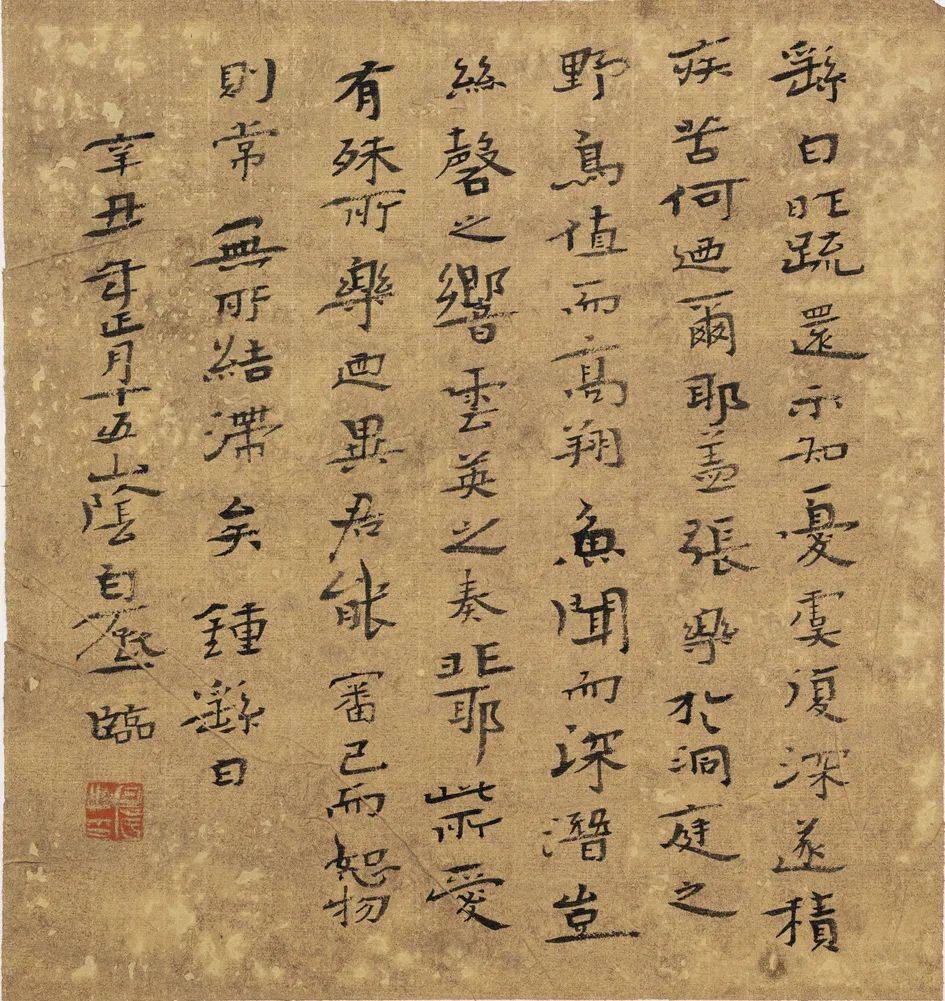 繇白昨疏還示知憂虞復深遂積
疾苦何迺爾耶蓋張樂於洞庭之
野鳥值而高翔魚聞而深潛豈
絲磬之響雲英之奏非耶此所愛
有殊所樂迺異君能審己而恕物
則常無所結滯矣鍾繇白
辛丑年正月十五山陰臨